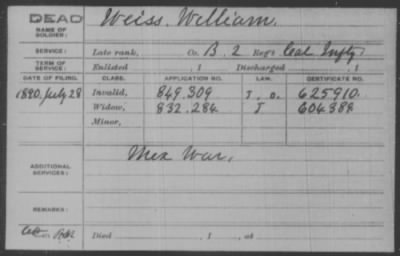 DEAD
NAME OF SOLDIER: Weiss, William.
SERVICE: Late rank, Co. B. 2 Reg't Cal Infty.
TERM OF SERVICE: Enlisted , 1 Discharged , 1
DATE OF FILING. CLASS. APPLICATION NO. LAW. CERTIFICATE NO.
1890. July 28 Invalid, 849.309 J. O. 625910.
Widow, 832.284 J 604388
Minor,
ADDITIONAL SERVICES: Mex War.
REMARKS:
Died , 1 , at